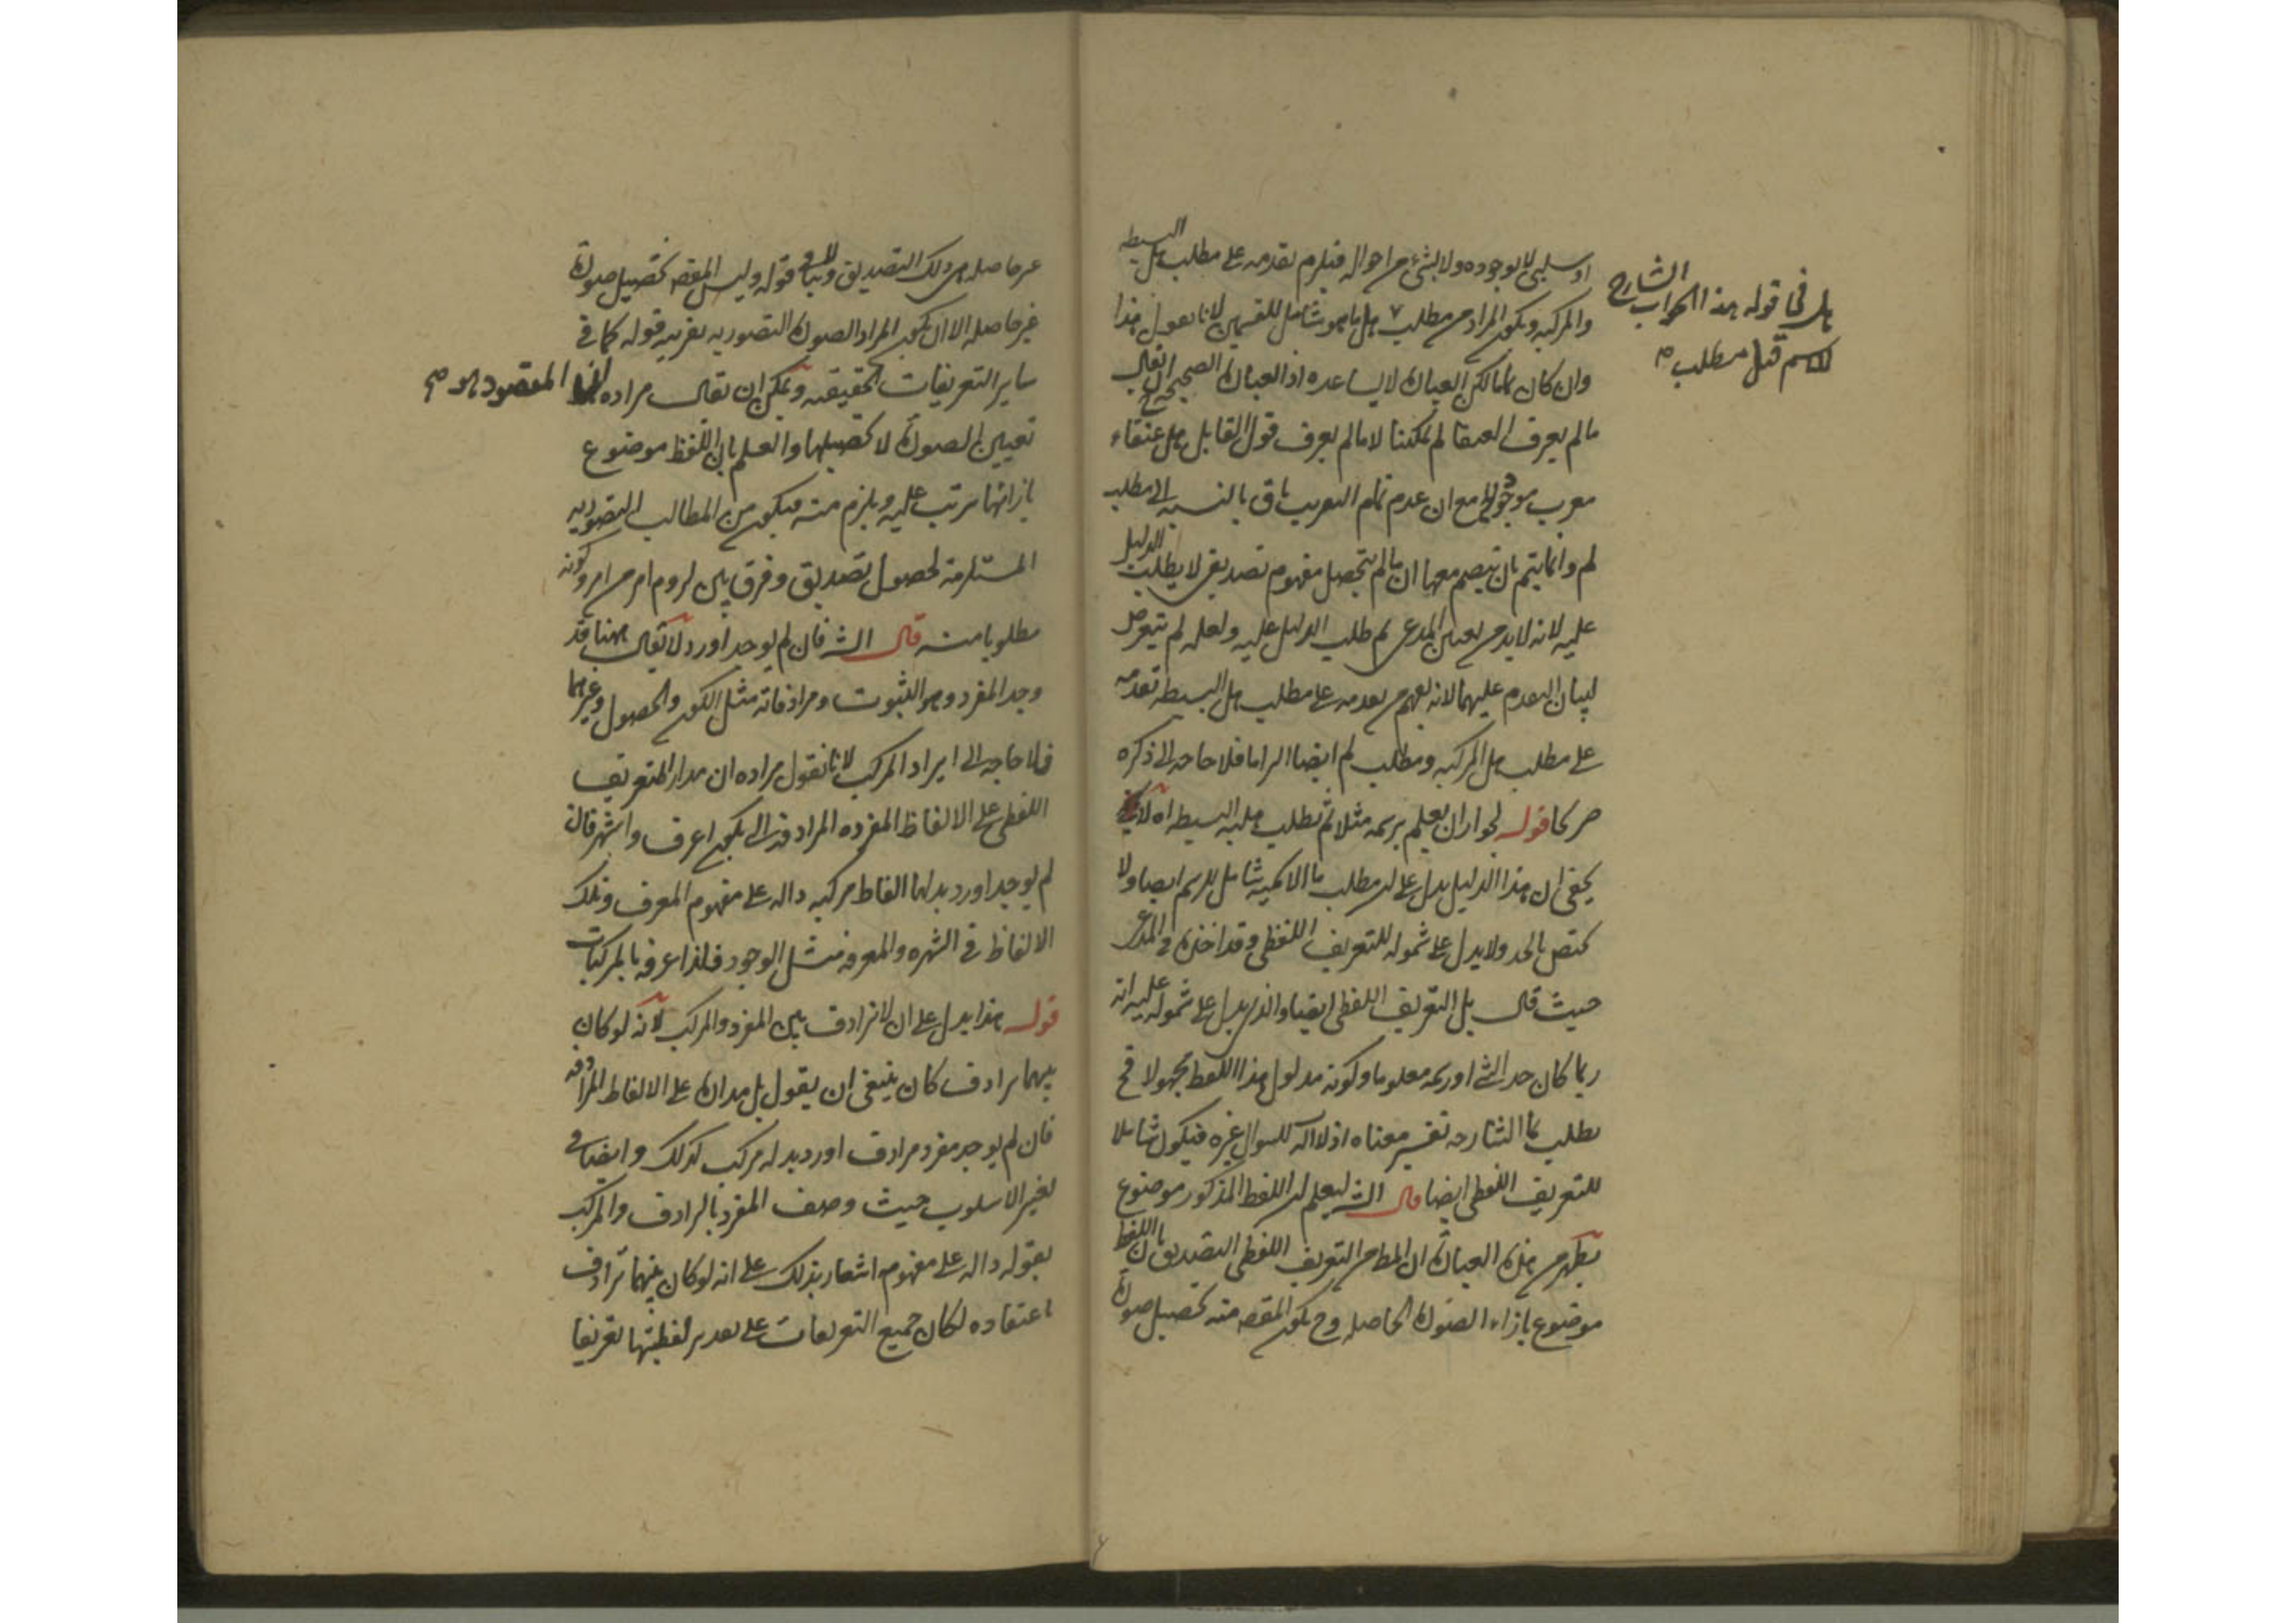 او سلبي لا بوجوده ولا بشئ من احواله فيلزم تقدمه على مطلب هل البسيطه
والمركبه ويكون المراد من مطلب هل ما هو شامل للقسمين لانا نقول هذا
وان كان كذلك لكن العبارة لا يساعده اذ العبارة الصحيحة ح ان يقال
ما لم يعرف العنقا لم يمكننا لا ما لم يعرف قول القايل هل عنقاء
مغرب موجود مع ان عدم تمام التعريب باق بالنسبه الى مطلب
لم وانما يتم بان ينضم معها ان ما لم يتحصل مفهوم تصديقي لا يطلب الدليل
عليه لانه لا بد من تعيين المدعى ثم طلب الدليل عليه ولعله لم يتعرض
لبيان التقدم عليهما لانه يفهم من تقدمه على مطلب هل البسيطه تقدمه
على مطلب هل المركبه ومطلب لم ايضا التزاما فلا حاجه الى ذكره
صريحا قوله لجواز ان يعلم برسمه مثلا ثم يطلب هليه البسيطه اه لا
يخفى ان هذا الدليل يدل على ان مطلب ما الاسمية شامل للرسم ايضا ولا
يختص بالحد ولا يدل على شموله للتعريف اللفظي وقد اخذه في المدعى
حيث قال بل التعريف اللفظي ايضا والذي يدل على شموله عليه انه
ربما كان حد الشئ او رسمه معلوما وكونه مدلول هذا اللفظ مجهولا فح
يطلب بما الشارحه تفسير معناه اذ لا اله للسوال غيره فيكون شاملا
للتعريف اللفظي ايضا قال الشـ ليعلم ان اللفظ المذكور موضوع
يظهر من هذه العبارة ان المط من التعريف اللفظي التصديق بان اللفظ
موضوع بازاء الصورة الحاصله وح يكون المقصـ منه تحصيل صورة
الشارح
هل في قوله هذا الجواب
للاسم قبل مطلب صح
غير حاصله هي ذلك التصديق وينافيه قوله وليس المقصـ تحصيل صورة
غير حاصله الا ان يكون المراد الصورة التصوريه بقرينه قوله كما في
ساير التعريفات الحقيقيه ويمكن ان يقال مراده ان المقصود هو صح
تعيين الصورة لا تحصيلها والعلم بان اللفظ موضوع
بازائها يترتب عليه ويلزم منه فيكون من المطالب التصوريه
المستلزمة لحصول تصديق وفرق بين لزوم امر من امر وكونه
مطلوبا منه قال الشـ فان لم يوجد اورد لا يقال ههنا قد
وجد المفرد وهو الثبوت ومرادفاته مثل الكون والحصول وغيرهما
فلا حاجه الى ايراد المركب لانا نقول مراده ان مدار التعريف
اللفظي على الالفاظ المفرده المرادفة التي يكون اعرف واشهر فان
لم يوجد اورد بدلها الفاظ مركبه داله على مفهوم المعرف وتلك
الالفاظ في الشهره والمعرفه مثل الوجود فلذا عرفه بالمركبات
قوله هذا يدل على ان لا ترادف بين المفرد والمركب لانه لو كان
بينهما ترادف كان ينبغي ان يقول بل مداره على الالفاظ المرادفه
فان لم يوجد مفرد مرادف اورد بدله مركب كذلك وايضا في
تغيير الاسلوب حيث وصف المفرد بالمرادف والمركب
بقوله داله على مفهوم اشعار بذلك على انه لو كان بينهما ترادف
اعتقاده لكان جميع التعريفات على تقدير لفظيتها تعريفا